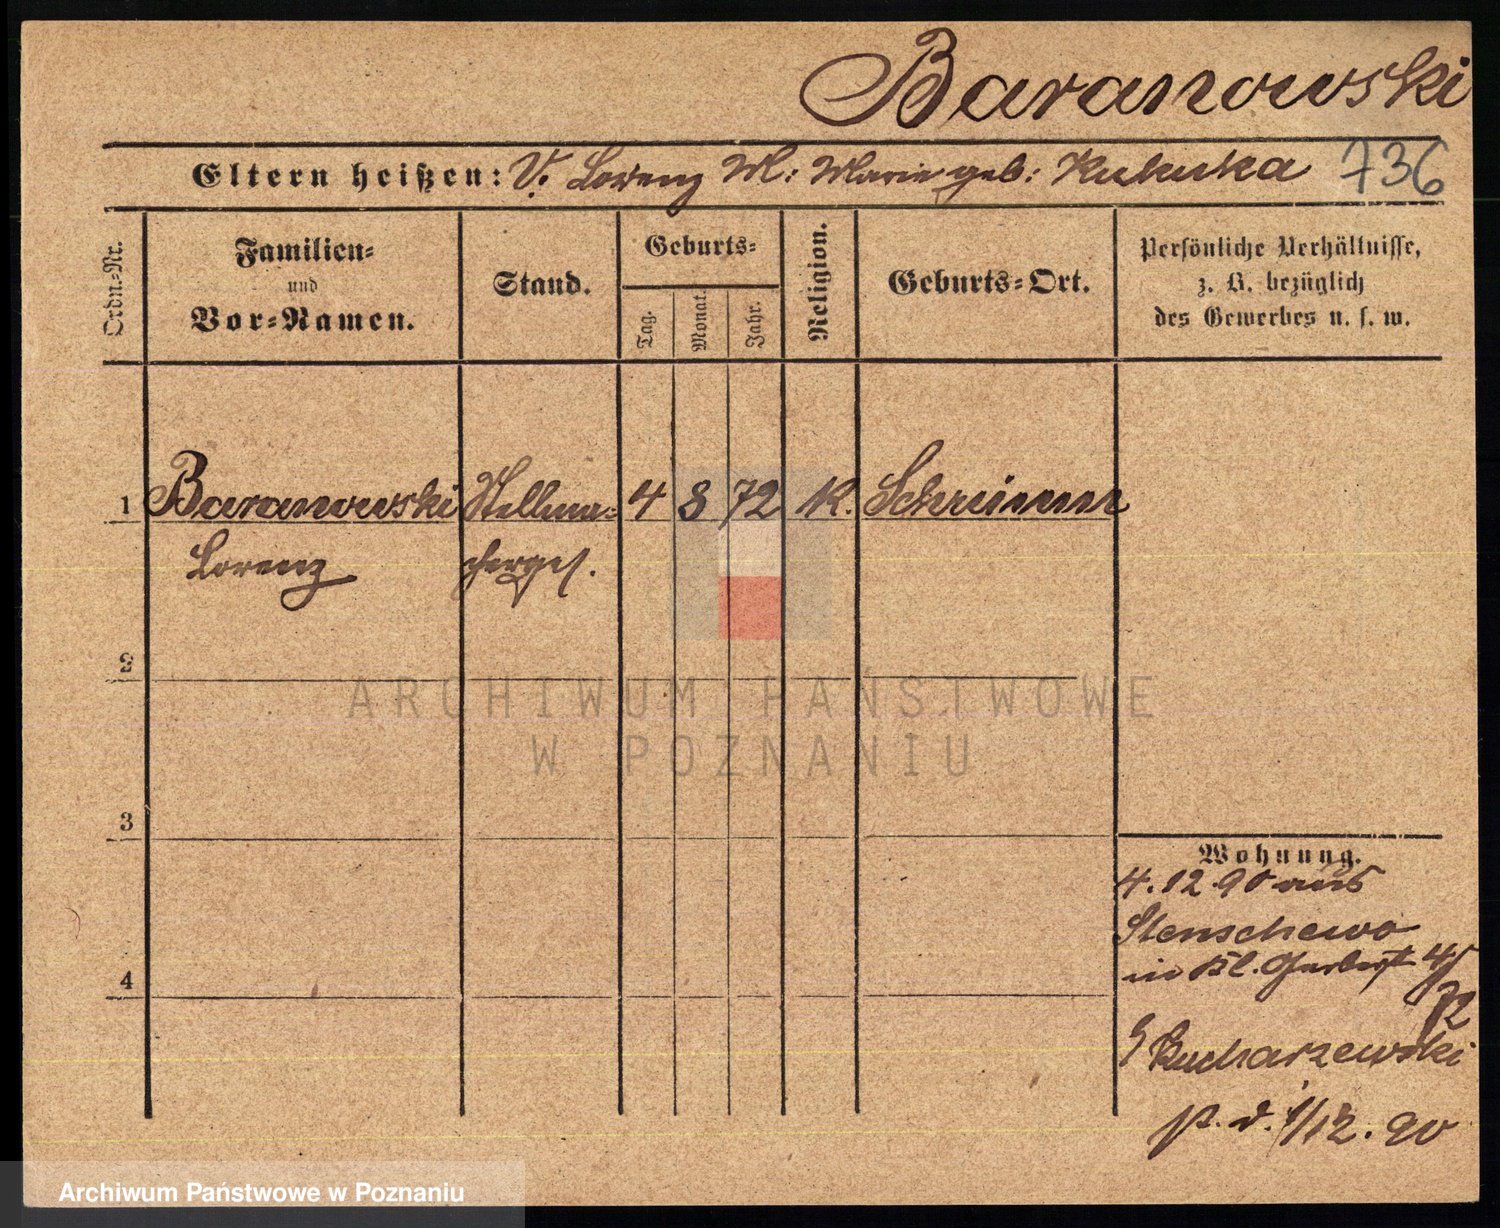 Baranowski
Eltern heißen: V. Lorenz M: Marie geb: Kukulka 736
Ordn.-Nr.
Familien-
und
Vor-Namen.
Stand.
Geburts-
Tag.
Monat.
Jahr.
Religion.
Geburts-Ort.
Persönliche Verhältnisse,
z. B. bezüglich
des Gewerbes u. s. w.
1 Baranowski Stellma- 4 8 72 K. Schrimm
Lorenz cherges.
2
3
4
Wohnung.
4.12.90 aus
Stenschewo
in Kl. Gerberst 45
72
Kucharzewski
p. d. 1/12. 90
ARCHIWUM PAŃSTWOWE
W POZNANIU
Archiwum Państwowe w Poznaniu